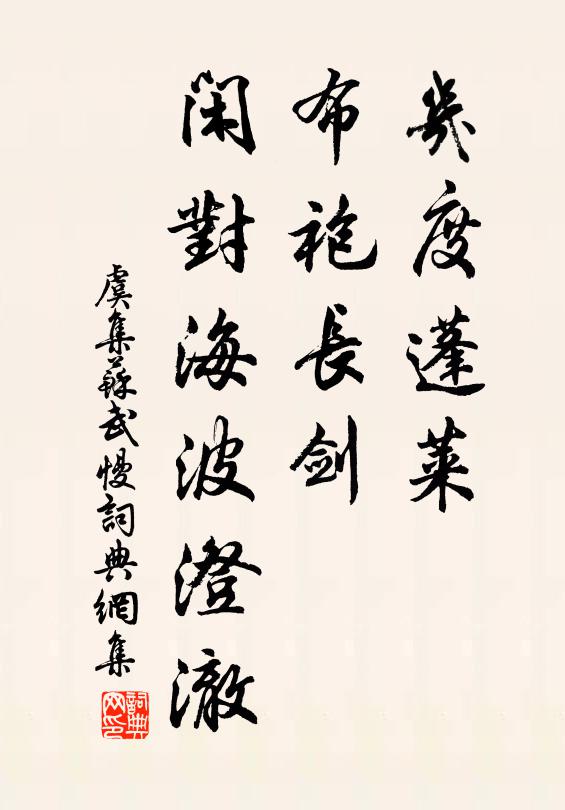 幾度蓬萊
布袍長劍
閑對海波澄澈
虞集蘇武慢詞典網集
詞典网印